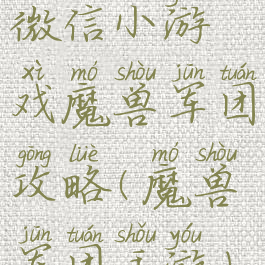 微信小游
xì mó shòu jūn tuán
戏魔兽军团
gōng lüè mó shòu
攻略(魔兽
jūn tuán shǒu yóu
军团手游)